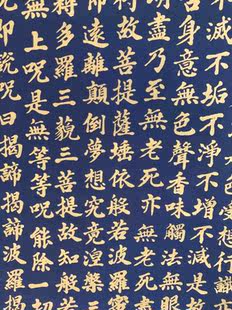 想行識
不滅不垢不淨不增不減是故
舌身意無色聲香味觸法無眼
盡乃至無老死亦無老死
故菩提薩埵依般若波羅蜜
遠離顛倒夢想究竟涅槃三
耨多羅三藐三菩提故知般若
無上咒是無等等咒能除一切
即說咒曰揭諦揭諦波羅揭